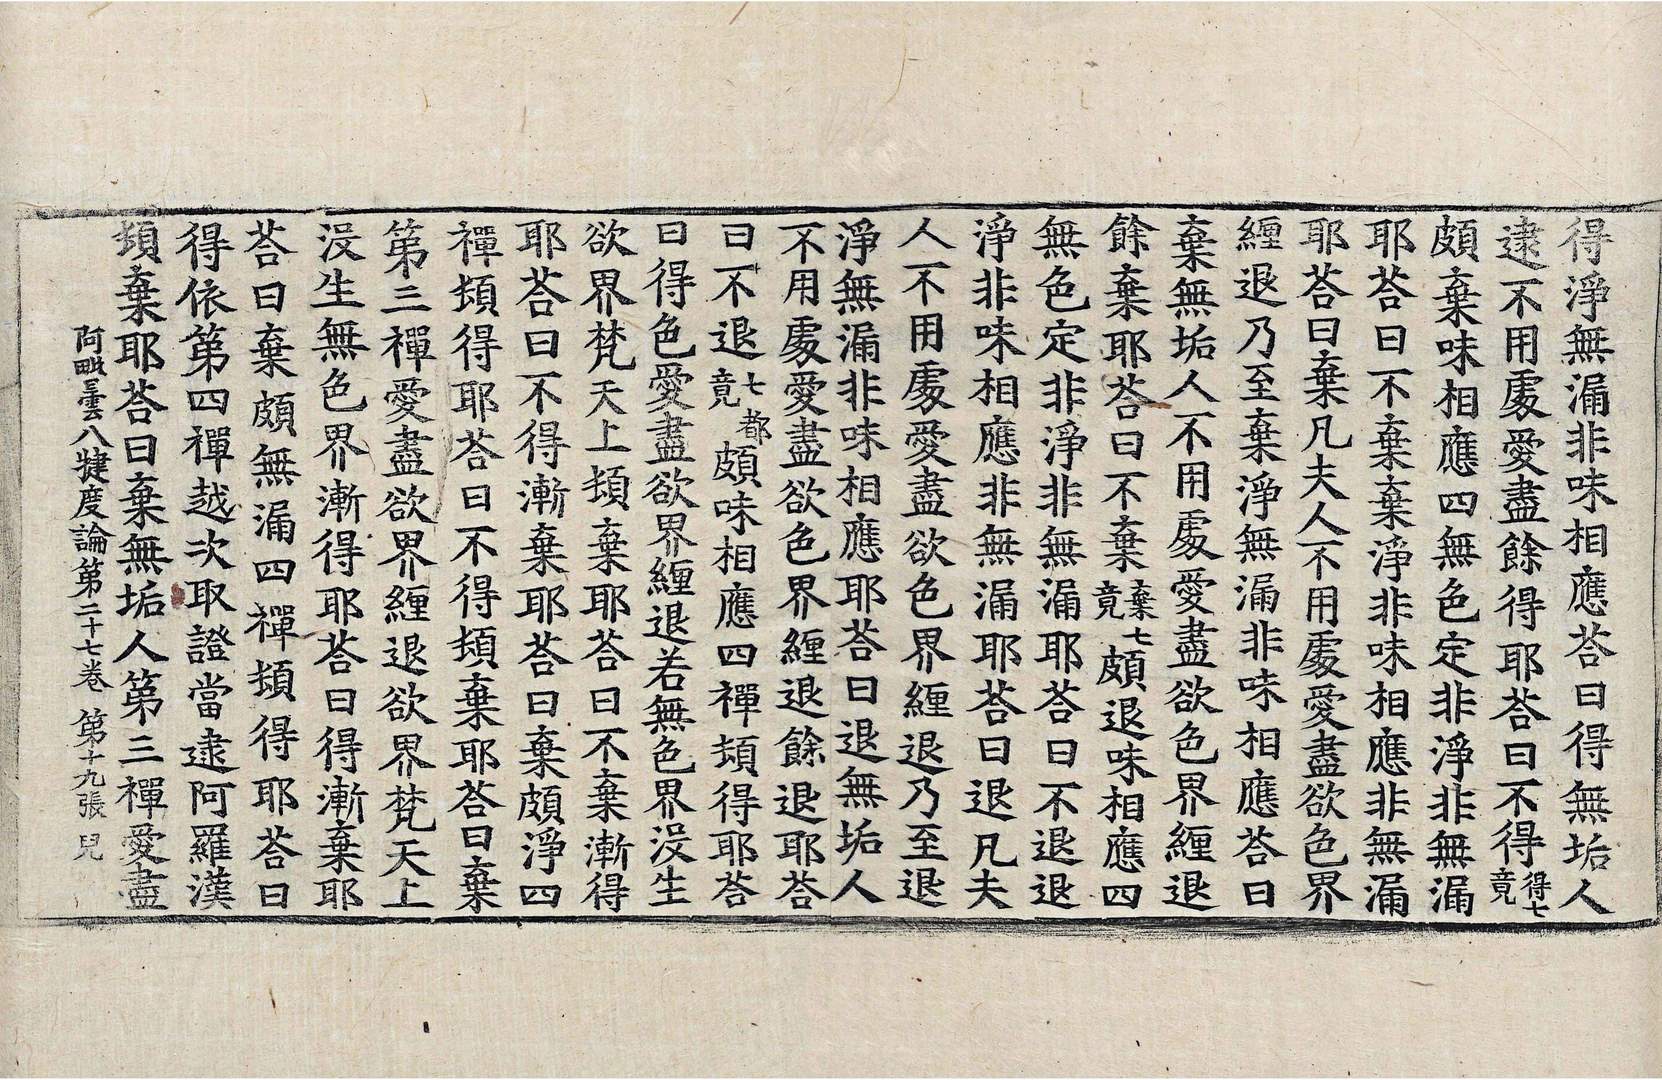 得淨無漏非味相應荅曰得無垢人
逮不用處愛盡餘得耶荅曰不得得七竟
頗棄味相應四無色定非淨非無漏
耶荅曰不棄棄淨非味相應非無漏
耶荅曰棄凡夫人不用處愛盡欲色界
纏退乃至棄淨無漏非味相應荅曰
棄無垢人不用處愛盡欲色界纏退
餘棄耶荅曰不棄棄七竟頗退味相應四
無色定非淨非無漏耶荅曰不退退
淨非味相應非無漏耶荅曰退凡夫
人不用處愛盡欲色界纏退乃至退
淨無漏非味相應耶荅曰退無垢人
不用處愛盡欲色界纏退餘退耶荅
曰不退七竟都頗味相應四禪頓得耶荅
曰得色愛盡欲界纏退若無色界沒生
欲界梵天上頓棄耶荅曰不棄漸得
耶荅曰不得漸棄耶荅曰棄頗淨四
禪頓得耶荅曰不得頓棄耶荅曰棄
第三禪愛盡欲界纏退欲界梵天上
沒生無色界漸得耶荅曰得漸棄耶
荅曰棄頗無漏四禪頓得耶荅曰
得依第四禪越次取證當逮阿羅漢
頓棄耶荅曰棄無垢人第三禪愛盡
阿毗曇八犍度論第二十七卷 第十九張 兒